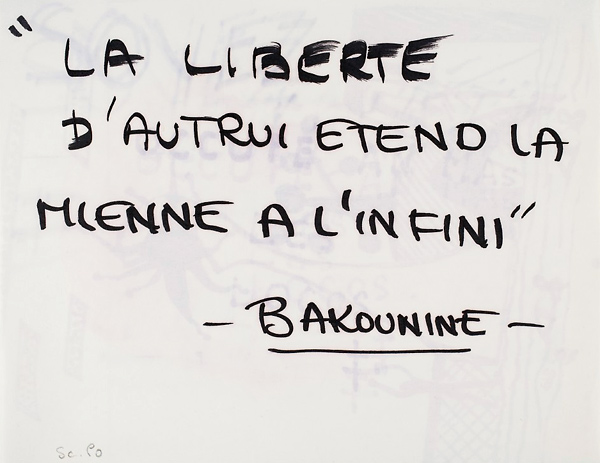 "LA LIBERTE
D'AUTRUI ETEND LA
MIENNE A L'INFINI"
- BAKOUNINE -
Sc. Po